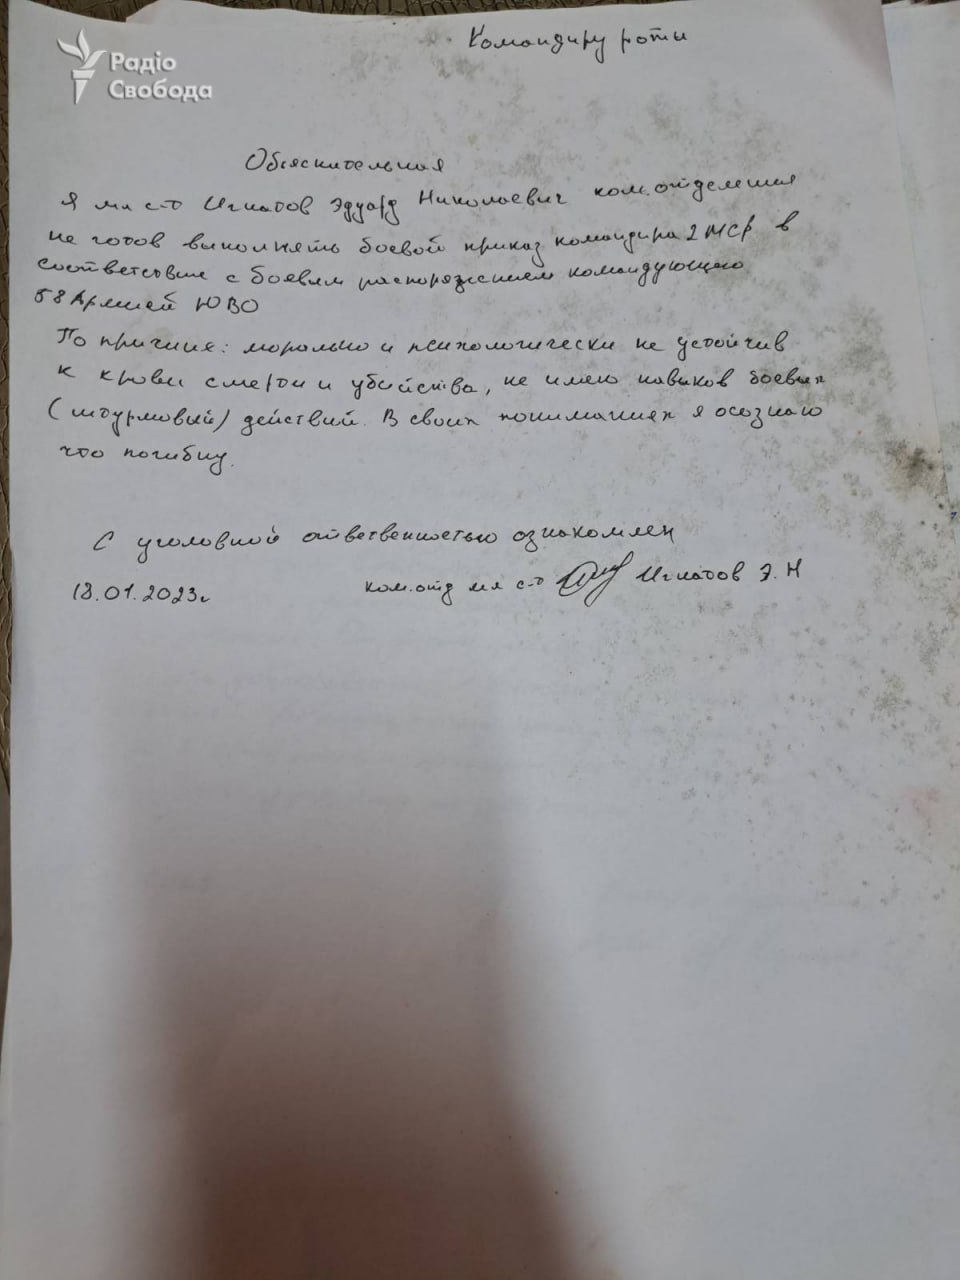 Радіо
Свобода
Командиру роты
Объяснительная
Я мл с-т Игнатов Эдуард Николаевич ком.отделения
не готов выполнять боевой приказ командира 2 МСР в
соответствие с боевым распоряжением командующего
58 Армией ЮВО
По причине: морально и психологически не устойчив
к крови смерти и убийства, не имею навыков боевых
(штурмовый) действий. В своих пониманиях я осознаю
что погибну.
С уголовной ответственностью ознакомлен
18.01.2023г ком.отд мл с-т Игнатов Э.Н